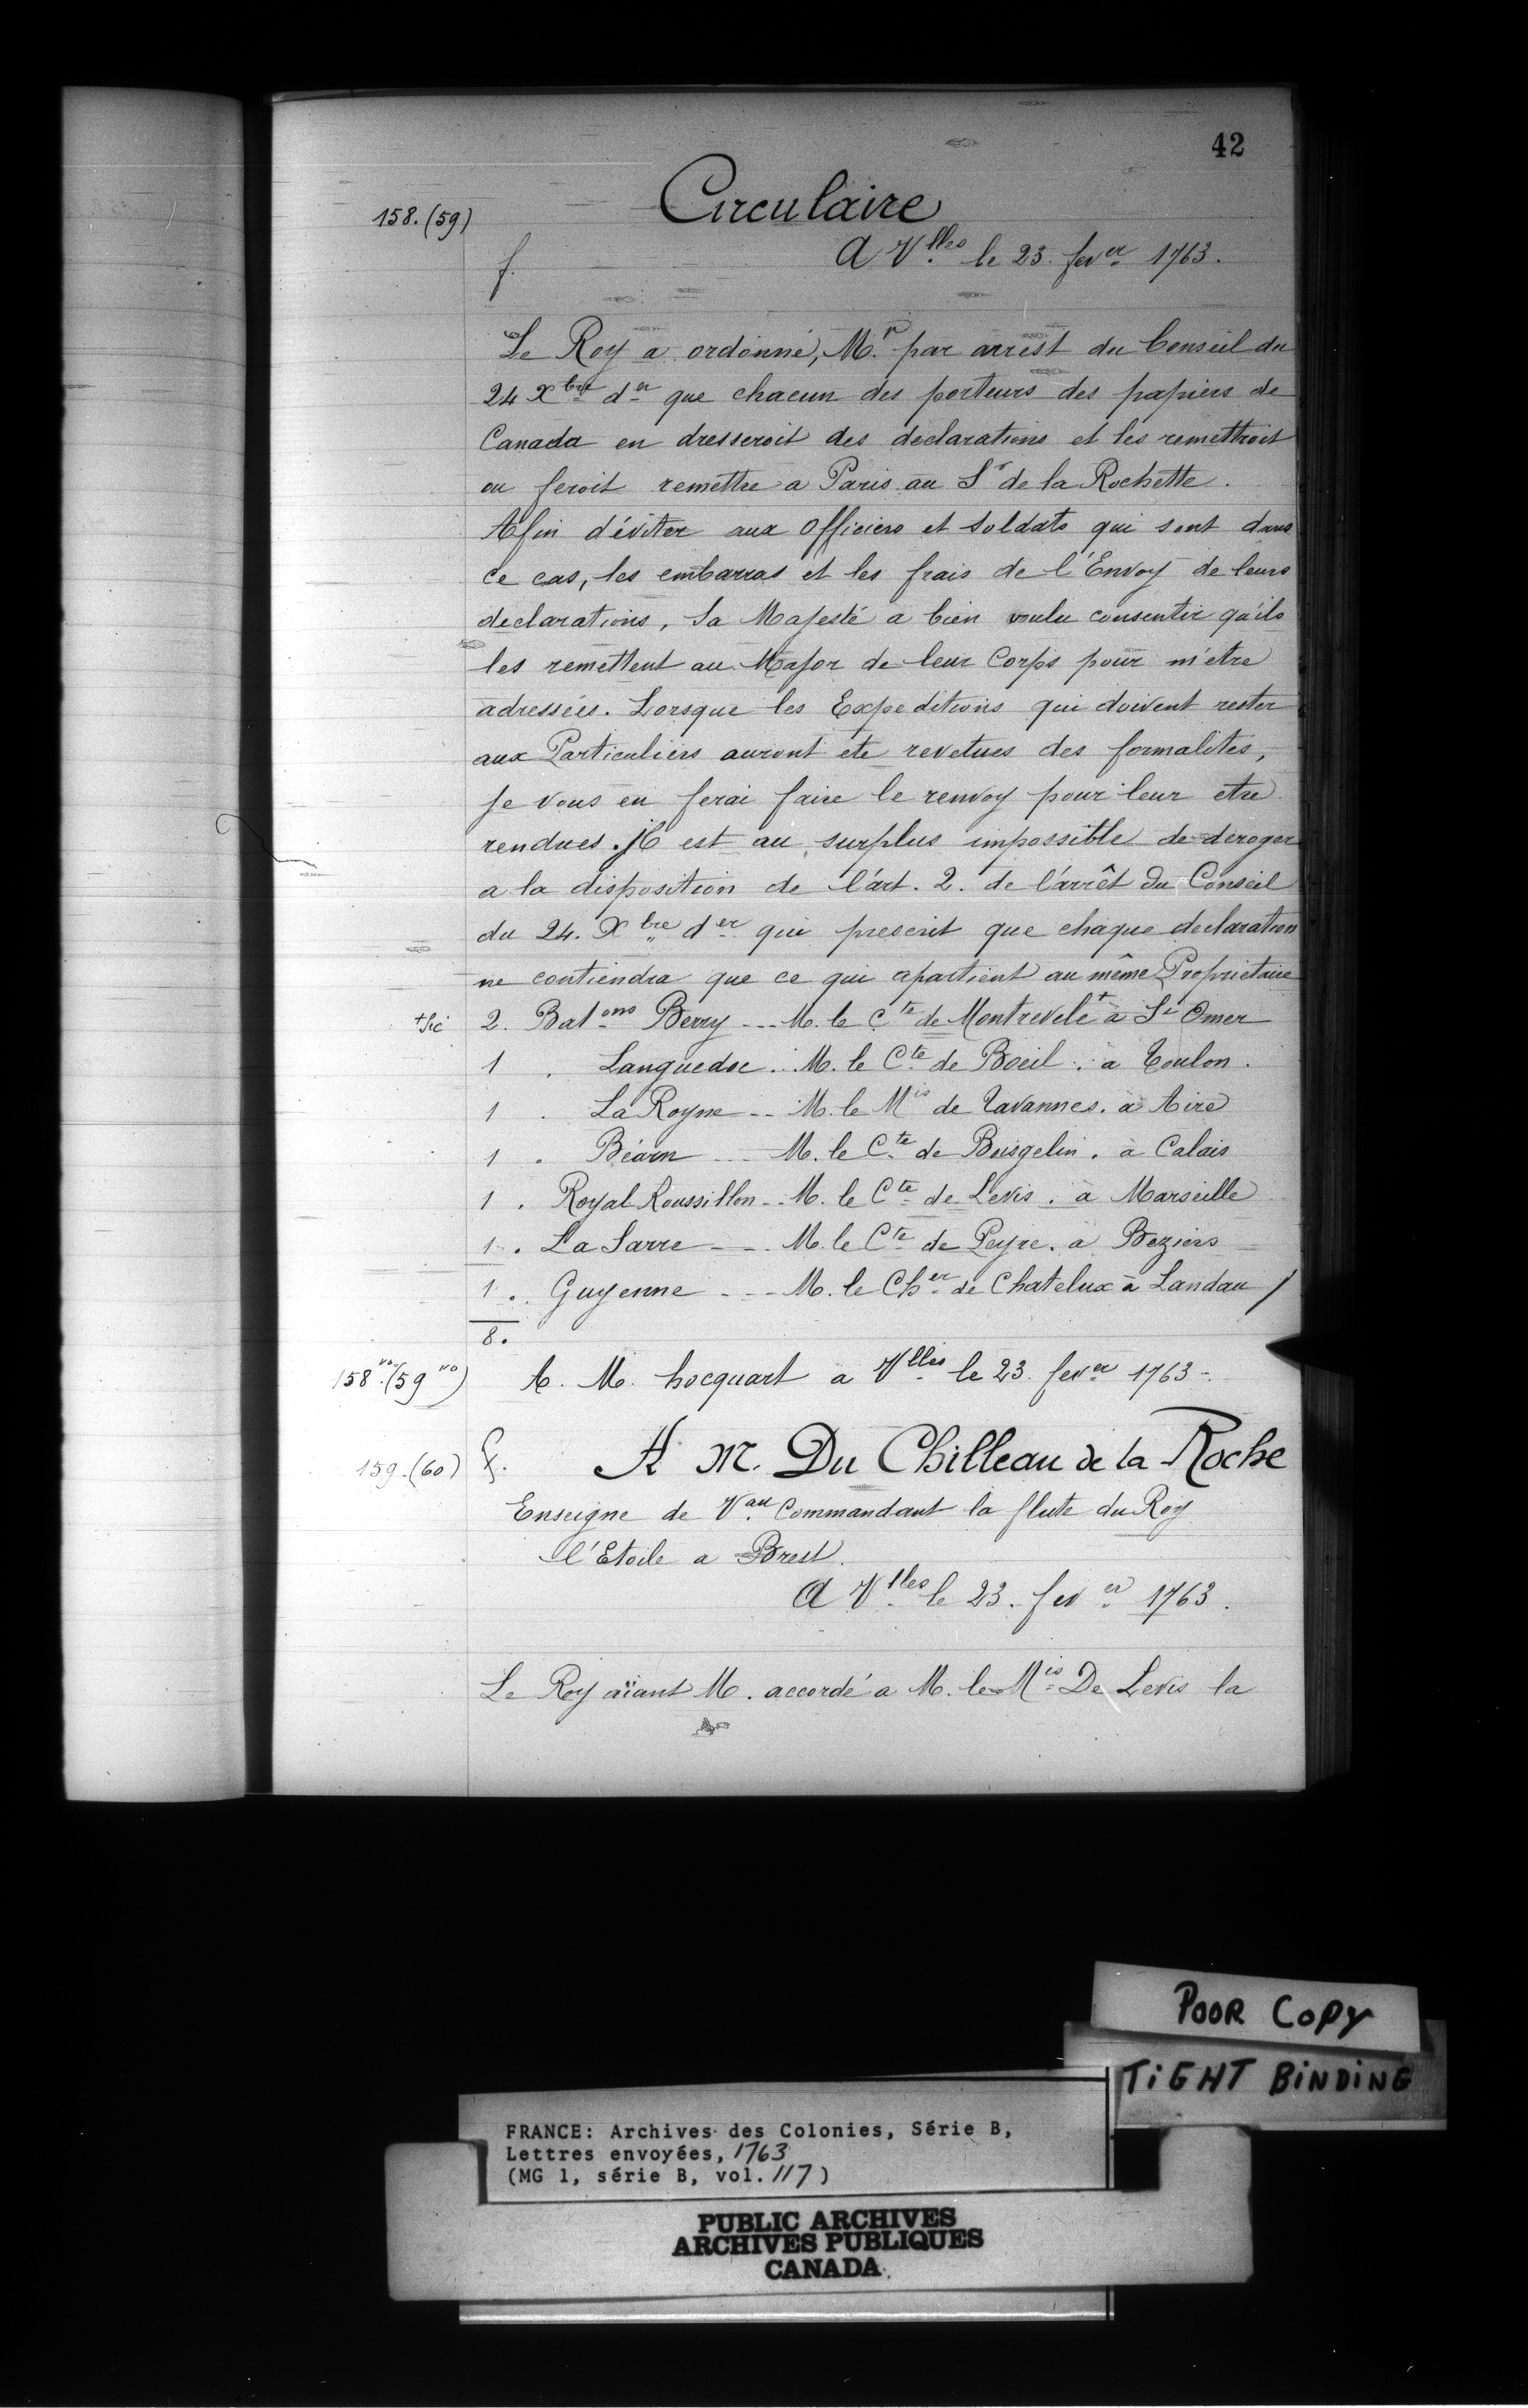 42
158. (59)
Circulaire
A V.lles le 23. fever 1763.
f.
Le Roy a ordonné, M.r par arrest du Conseil du
24 Xbre der que chacun des porteurs des papiers de
Canada en dresseroit des declarations et les remettroit
ou feroit remettre a Paris au Sr de la Rochette.
Afin d'éviter aux Officiers et Soldats qui sont dans
ce cas, les embarras et les frais de l'Envoy de leurs
declarations, Sa Majesté a bien voulu consentir qu'ils
les remettent au Major de leur Corps pour m'etre
adressées. Lorsque les Expeditions qui doivent rester
aux Particuliers auront ete revetues des formalites,
je vous en ferai faire le renvoy pour leur etre
rendues. Il est au surplus impossible de deroger
a la disposition de l'art. 2. de l'arrêt du Conseil
du 24. Xbre der qui prescrit que chaque declaration
ne contiendra que ce qui apartient au même Proprietaire
+Sic 2. Batons Berry --- M. le Cte de Montrevele+ à St Omer
1 . Languedoc .. M. le Cte de Boeil . à Toulon.
1 . La Royne -- M. le Mis de Tavannes. à Aire
1 . Béarn --- M. le Cte de Boisgelin. à Calais
1 . Royal Roussillon -- M. le Cte de Levis . à Marseille
1 . La Sarre --- M. le Cte de Peyre. à Beziers
1 . Guyenne --- M. le Cher de Chatelux à Landau /
8.
158.vo (59 vo) A. M. hocquart a Vlles le 23. fever 1763 -.
159. (60) f. A M. Du Chilleau de la Roche
Enseigne de Vau Commandant la flute du Roy
l'Etoile a Brest.
A V.lles le 23. fever 1763.
Le Roy aïant M. accordé a M. le Mis De Levis la
POOR COPY
TIGHT BINDING
FRANCE: Archives des Colonies, Série B,
Lettres envoyées, 1763
(MG 1, série B, vol. 117)
PUBLIC ARCHIVES
ARCHIVES PUBLIQUES
CANADA